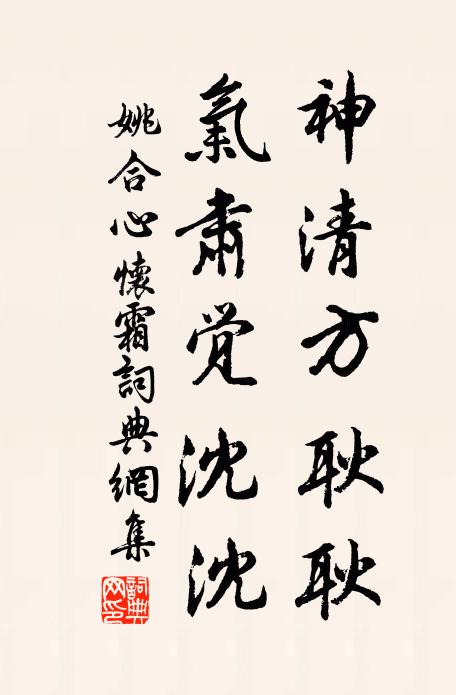 神清方耿耿
氣肅觉沈沈
姚合心懷霜詞典網集
詞典网印